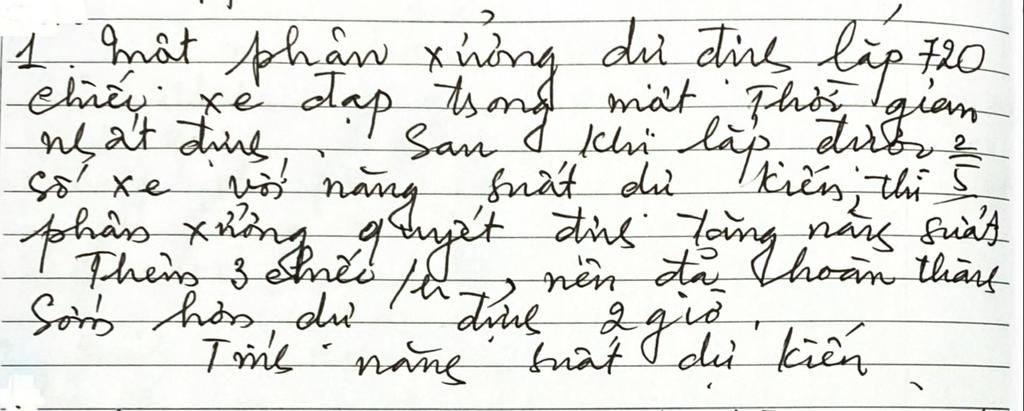 1. Một phân xưởng dự định lắp 720
chiếc xe đạp trong một thời gian
nhất định. Sau khi lắp được 2/5
số xe với năng suất dự kiến, thì
phân xưởng quyết định tăng năng suất
thêm 3 chiếc/h, nên đã hoàn thành
sớm hơn dự định 2 giờ.
Tính năng suất dự kiến